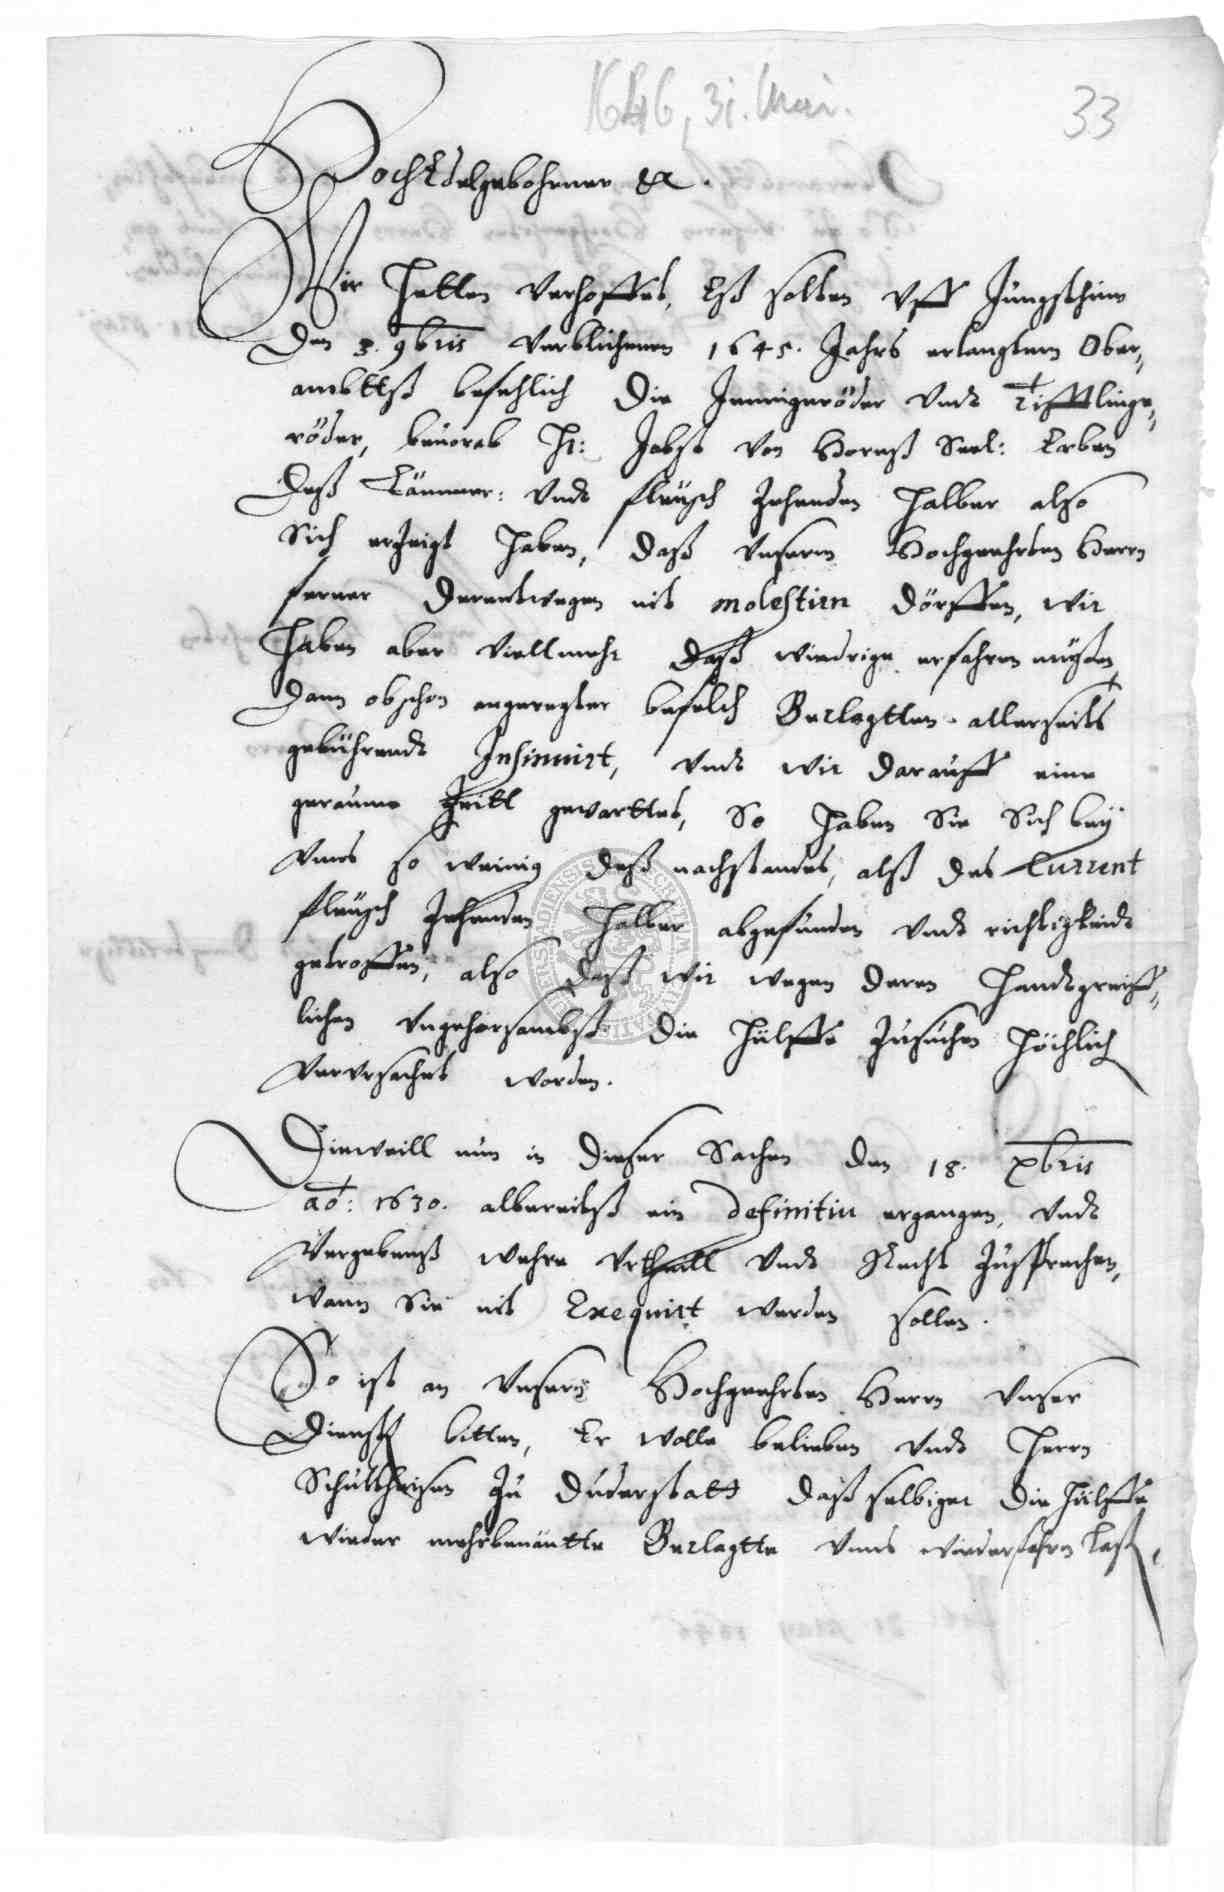 1646, 31. Mai.
33
HochEdelgebohrner &c.
Wir hetten verhoffet, Eß solten vff Jüngsthin
den 3. 9bris verblichenen 1645. Jahrs erlangtem Ober-
ambttß befehlich die Immigeröder vndt Tifftlinge-
röder, beuorab H: Jobst von Hornß Seel: Erben
deß Lämmer: vndt fleysch Zehenden halber also
Sich erzeigt haben, daß vnserm Hochgeehrten Herrn
ferner derentwegen nit molestirn dörffen, wir
haben aber viellmehr daß wiedrige erfahren müßen,
dann obschon angeregter befelch Beclagtten allerseits
gebührendt Insinuirt, vndt wir darauff eine
geraume Zeitt gewarttet, So haben Sie Sich bey
vnns so weinig deß nachstandes, alß des Current
fleysch Zehenden halber abgefunden vndt richtigkeidt
getroffen, also daß wir wegen deren handtgreiff-
lichen vngehorsambst die hülffe zusuchen höchlich
verursachet worden.
Dieweill nun in dieser Sachen den 18. xbris
ao: 1630. albereitß ein definitiu ergangen, vndt
Vergebenß wehre vrtheill vndt Recht Zusprechen,
wann Sie nit Exequirt werden sollen.
So ist an vnsern Hochgeehrten Herrn vnser
dienstl bitten, Er wolle belieben vndt Herrn
Schultheisen zu Duderstatt daß selbiger die hülffe
wieder mehrbenäntte Beclagtte vnns wiederfahrn laß,